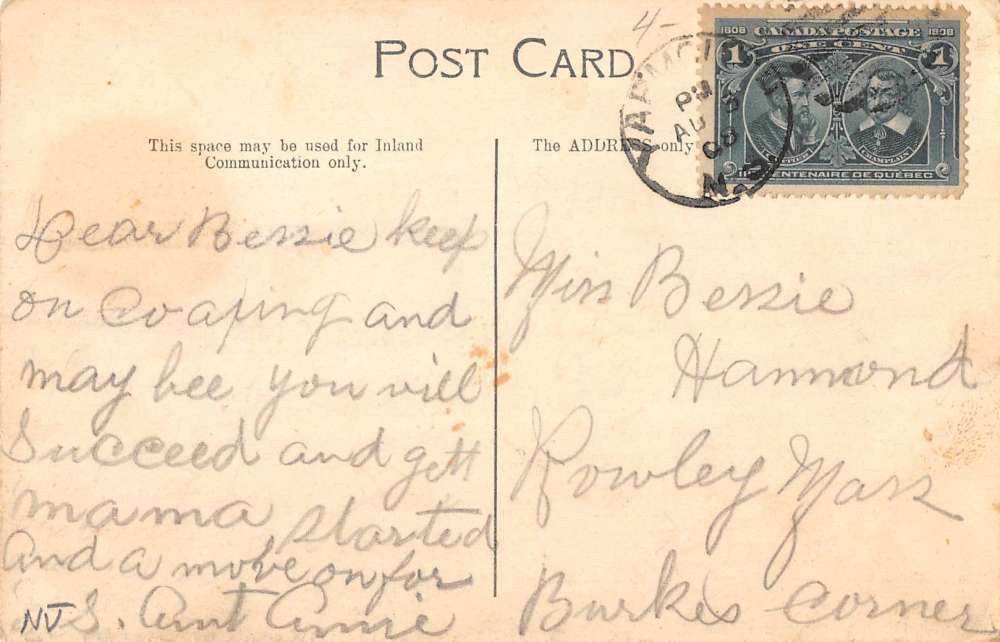 4-
POST CARD
1608 CANADA POSTAGE 1908
1 ONE CENT 1
CARTIER CHAMPLAIN
IIIe CENTENAIRE DE QUÉBEC
PM
AU 3
08
N.S.
This space may be used for Inland
Communication only.
The ADDRESS only
Dear Bessie keep
on Coaping and
may bee you will
Succeed and gett
mama started
and a move on for
N S. Aunt Annie
NJ
Miss Bessie
Hammond
Rowley Mass
Burkes Corner